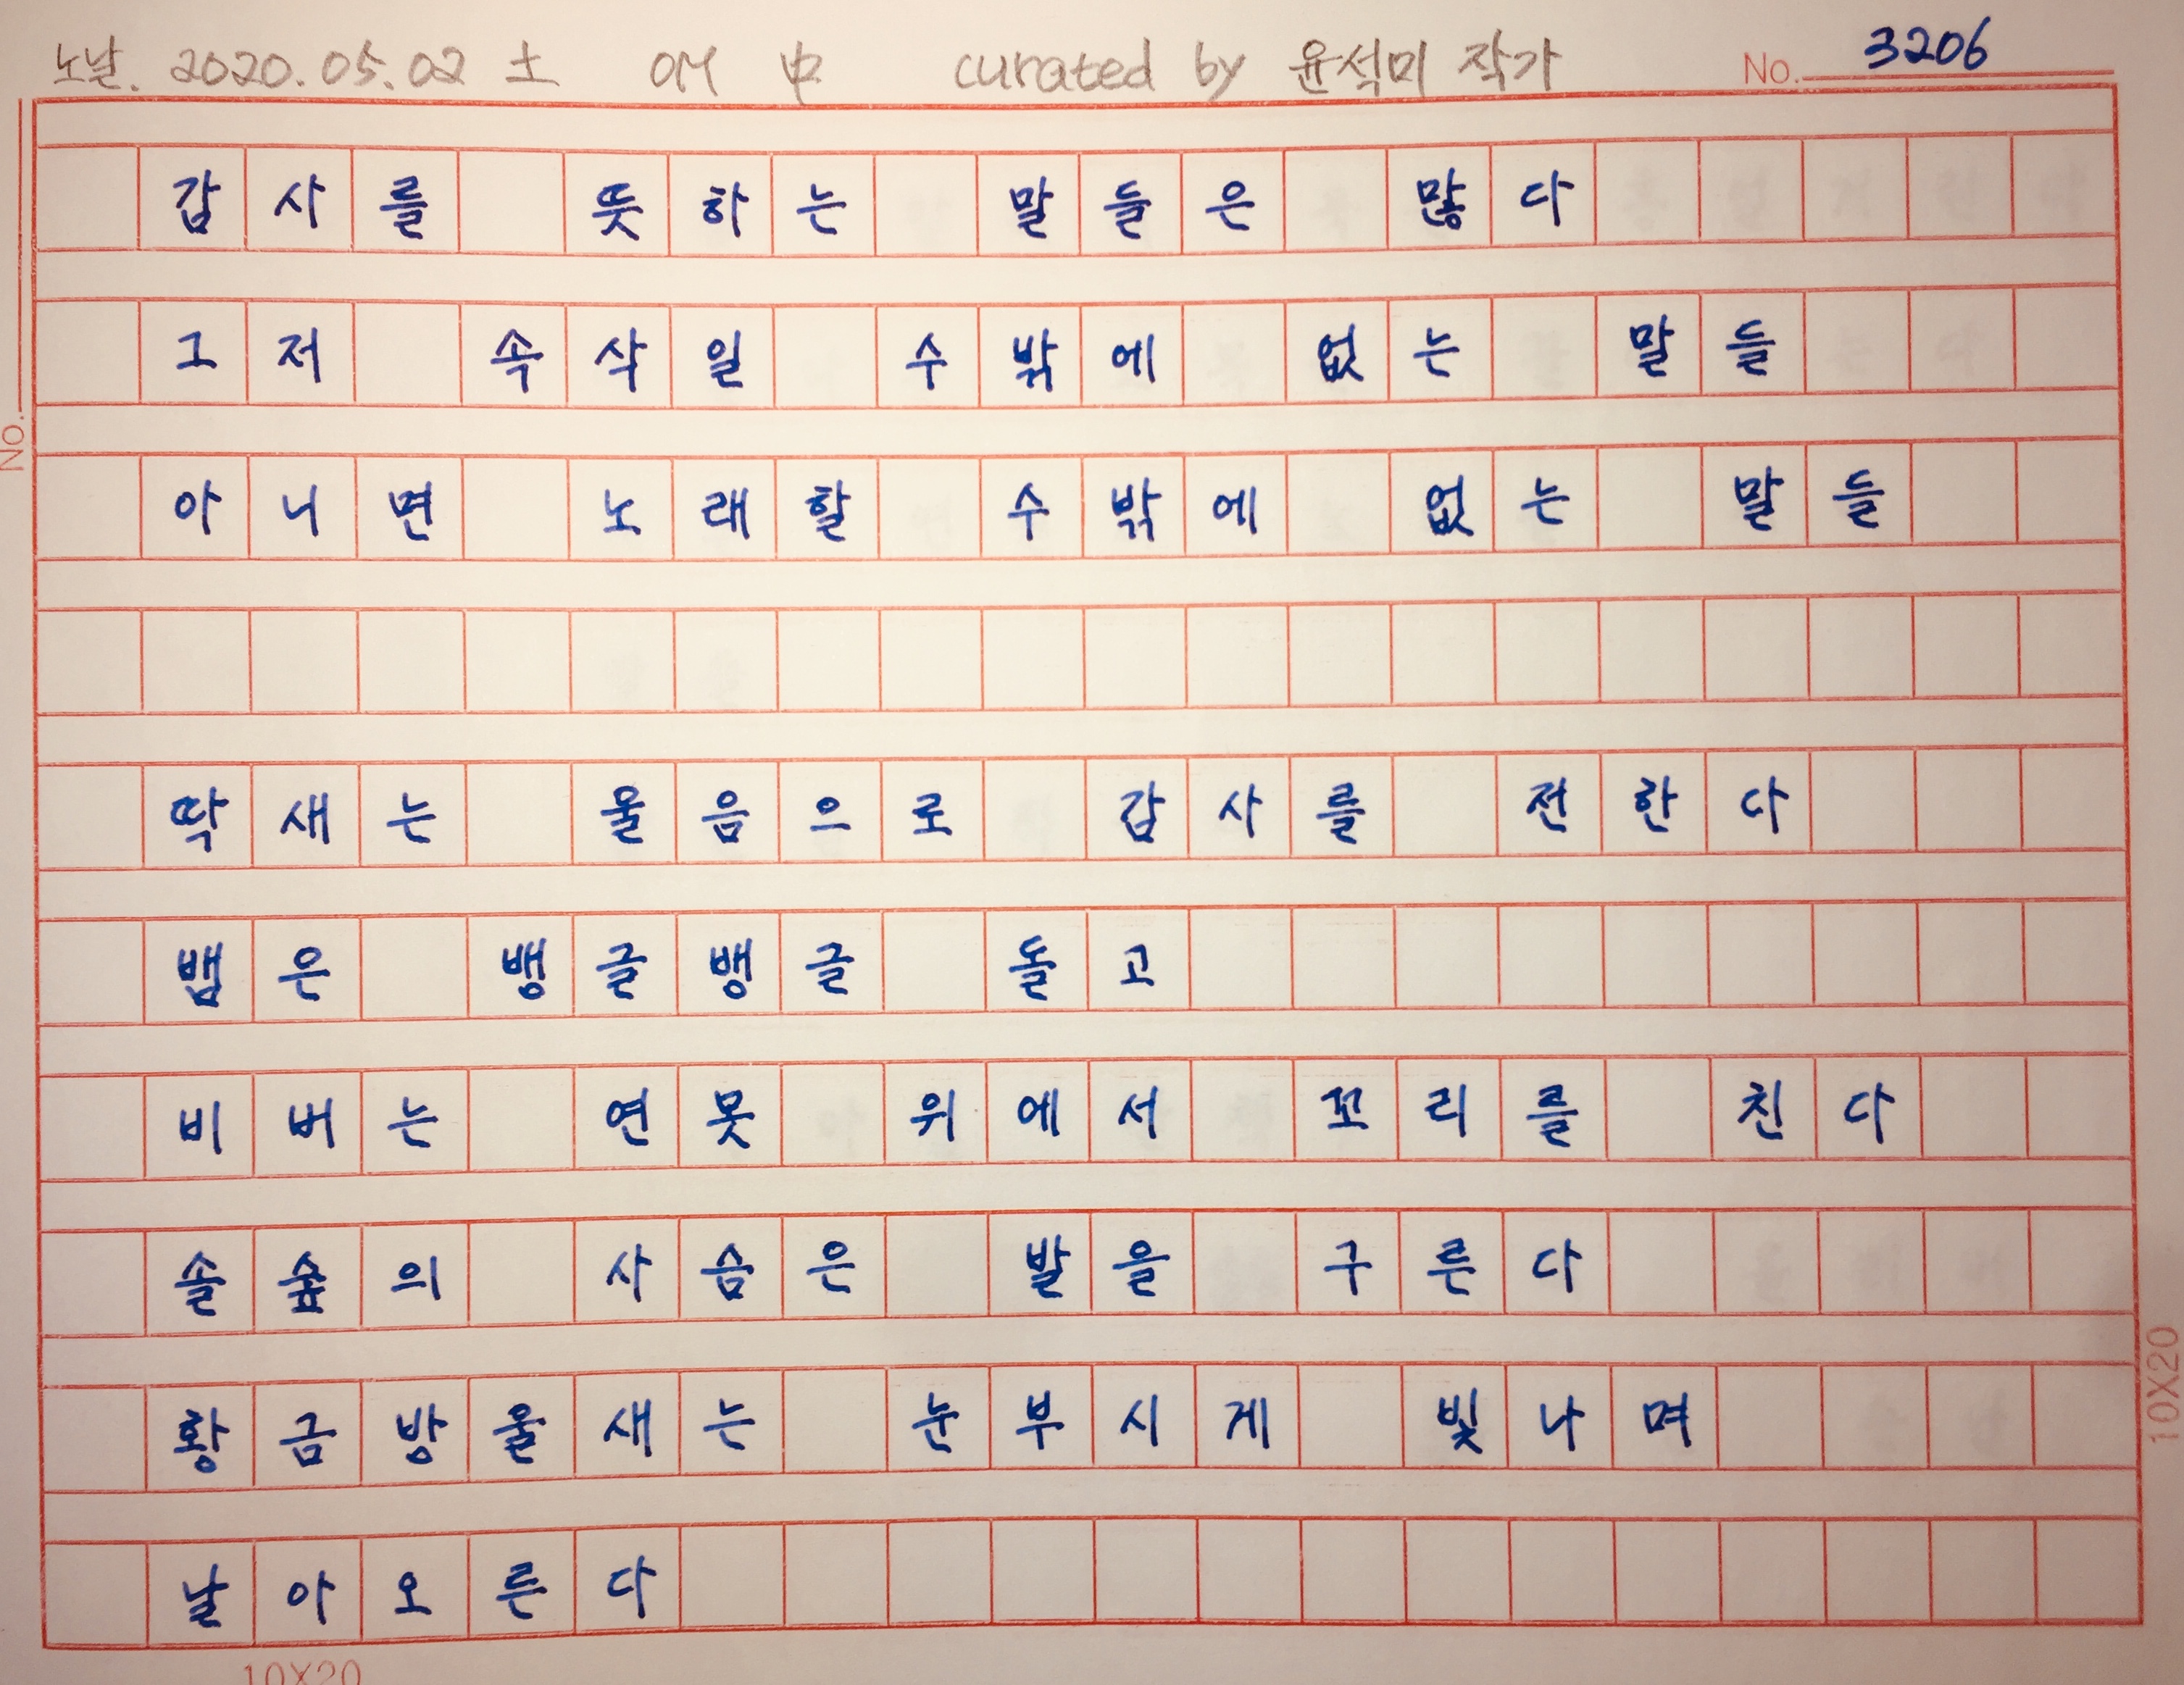 노날. 2020.05.02 土 OM 中 curated by 윤석미 작가 No. 3206
감사를 뜻하는 말들은 많다
그저 속삭일 수밖에 없는 말들
No.
아니면 노래할 수밖에 없는 말들
딱새는 울음으로 감사를 전한다
뱀은 뱅글뱅글 돌고
비버는 연못 위에서 꼬리를 친다
솔숲의 사슴은 발을 구른다
황금방울새는 눈부시게 빛나며
10X20
날아오른다
10X20